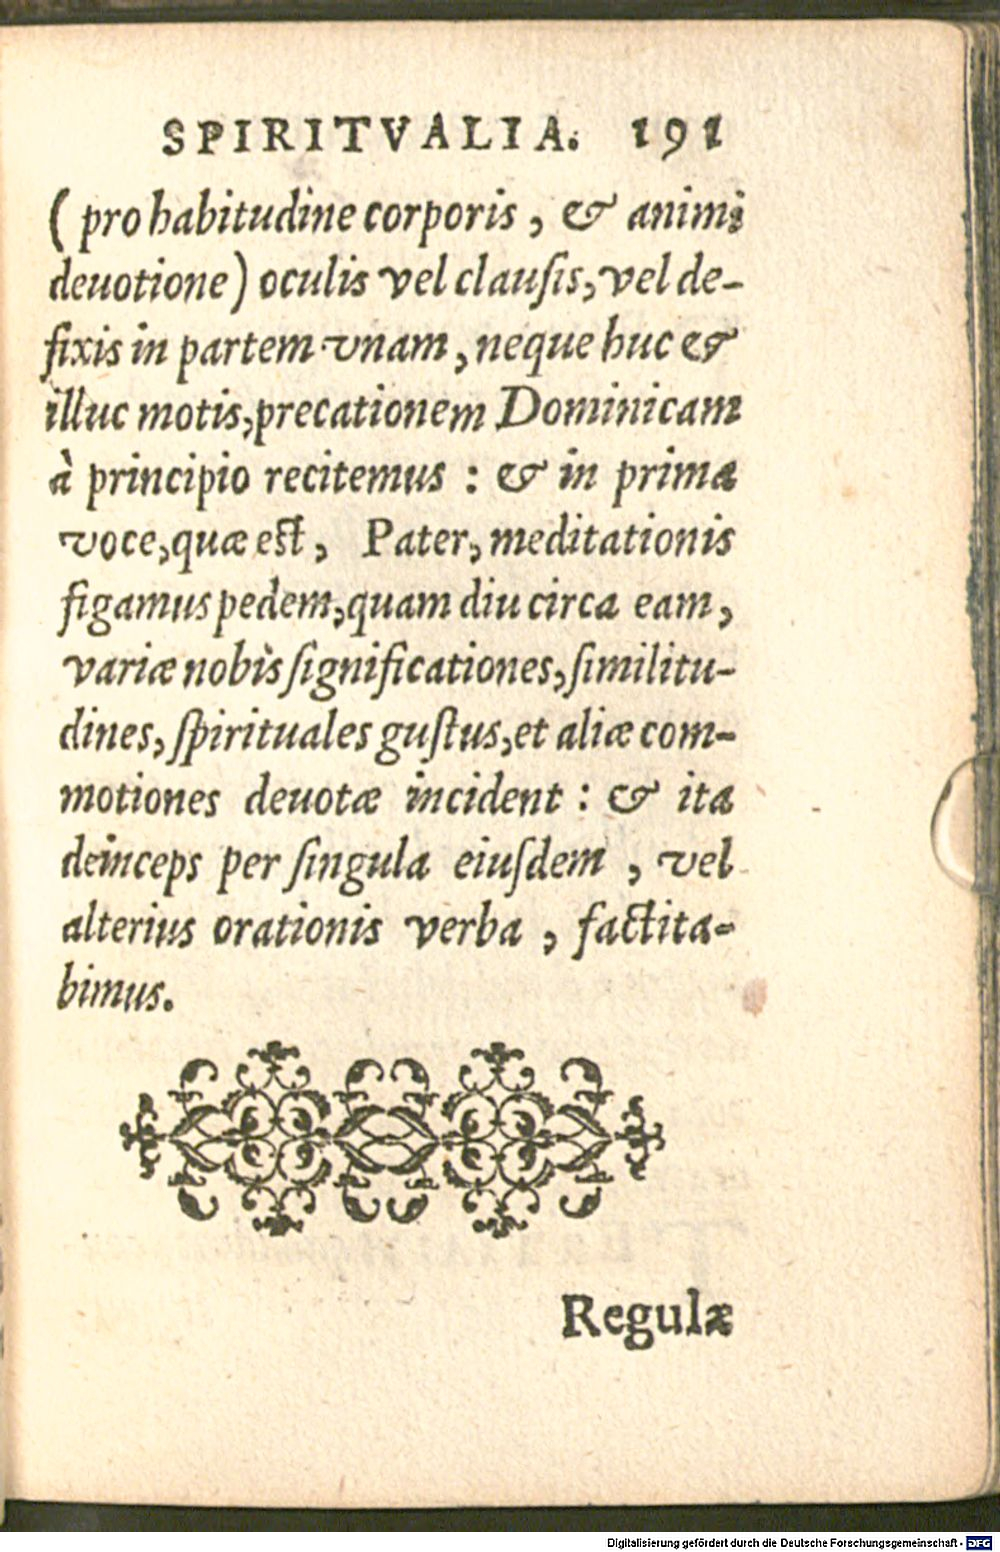 SPIRITVALIA. 191
( pro habitudine corporis, & animi
deuotione) oculis vel clauſis, vel de-
fixis in partem vnam, neque huc &
illuc motis, precationem Dominicam
à principio recitemus : & in prima
voce, quæ est, Pater, meditationis
figamus pedem, quam diu circa eam,
variæ nobis ſignificationes, ſimilitu-
dines, ſpirituales guſtus, et aliæ com-
motiones deuotæ incident : & ita
deinceps per ſingula eiuſdem, vel
alterius orationis verba, factita-
bimus.
Regulæ
Digitalisierung gefördert durch die Deutsche Forschungsgemeinschaft - DFG